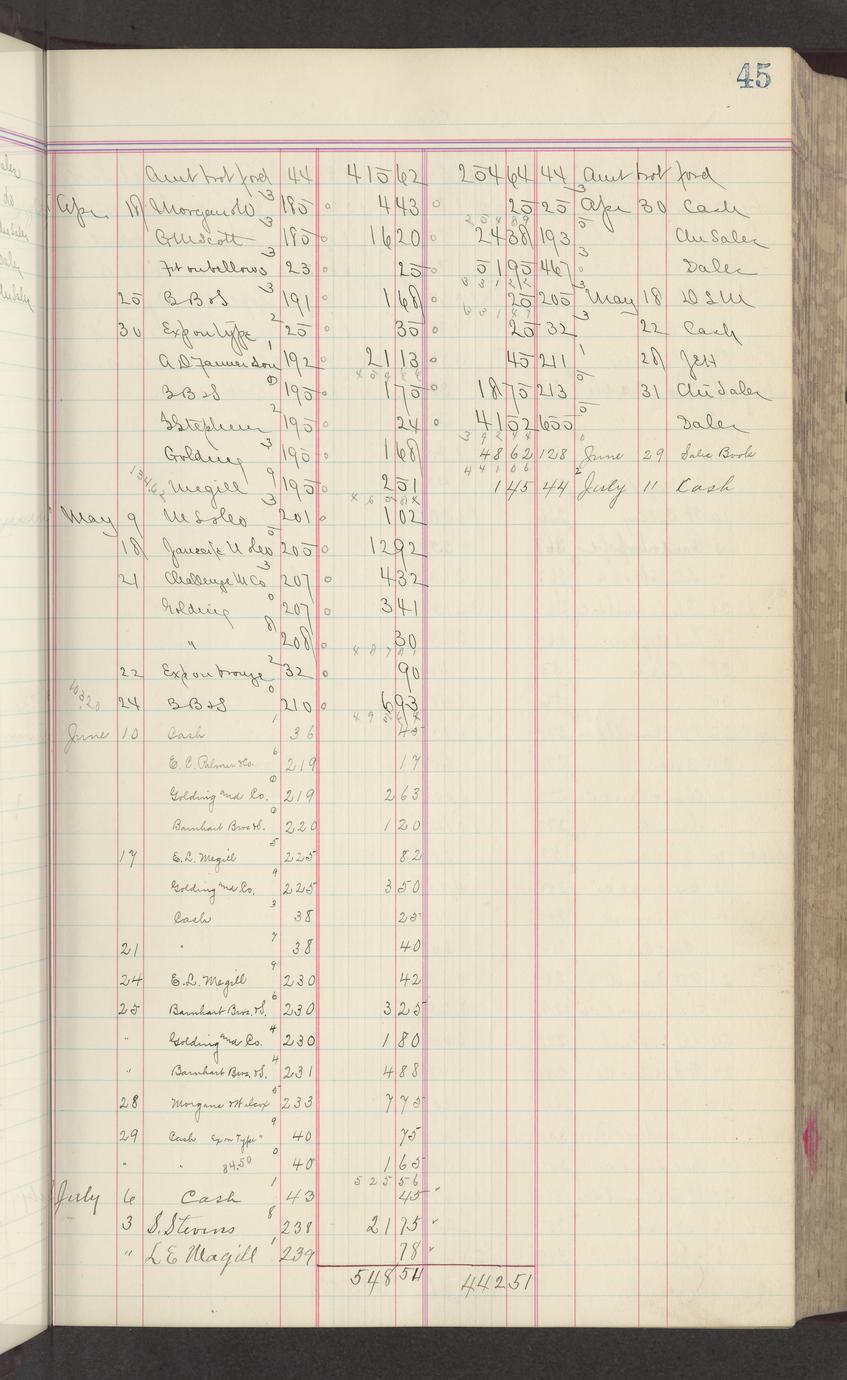 45
Amt brot ford 44 415 62 254 64 44 Amt brot ford
Apr 18 Morgan & W 3 185 4 43 25 25 3 Apr 30 Cash
254 89
G M Scott 3 185 16 20 24 38 193 5 An Sales
Fit on bellows 3 23 25 51 95 467 3 Sales
331 22
25 B B & S 3 191 1 68 25 205 3 May 18 D S M
331 47
30 Exp on type 2 25 35 25 32 22 Cash
A D Farmer & Son 1 192 21 13 45 211 1 28
B B & S 0 195 1 75 18 75 213 5 31 An Sales
S Stephens 2 195 24 41 52 655 5 Sales
392 44
Golding 3 195 1 68 48 62 128 0 June 29 Sales Book
441 06
Megill 9 195 2 51 1 45 44 2 July 11 Cash
May 9 3 201 1 02
18 5 205 12 92
21 Challenge M Co 3 207 4 32
Golding 0 207 3 41
" 8 208 30
22 Exp on bronze 2 32 90
24 B B & S 0 210 6 93
June 10 Cash 1 36 45
E. C. Palmer & Co. 6 219 17
Golding and Co. 0 219 2 63
Barnhart Bros & S. 0 220 1 20
17 E. L. Megill 5 225 82
Golding and Co. 9 225 3 50
Cash 3 38 25
21 " 7 38 40
24 E. L. Megill 9 230 42
25 Barnhart Bros. & S. 6 230 3 25
" Golding and Co. 4 230 1 80
" Barnhart Bros. & S. 4 231 4 88
28 Morgans & Wilcox 5 233 7 75
29 Cash Ex on Type" 9 40 75
" " 84.50 0 40 1 65
525 56
July 6 Cash 1 43 45
3 S. Stevens 8 238 21 75
" L E Magill 1 239 78
548 54 442 51